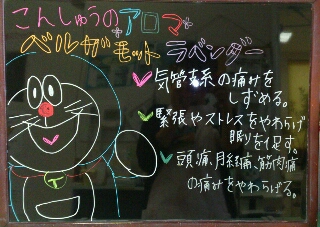 こんしゅうのアロマ
ベルガモット ラベンダー
気管支系の痛みを
しずめる。
緊張やストレスをやわらげ
眠りを促す。
頭痛、月経痛、筋肉痛
の痛みをやわらげる。